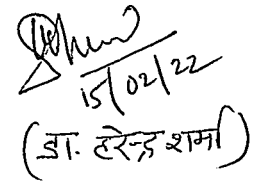 15/02/22
(डा. हरेन्द्र शर्मा)